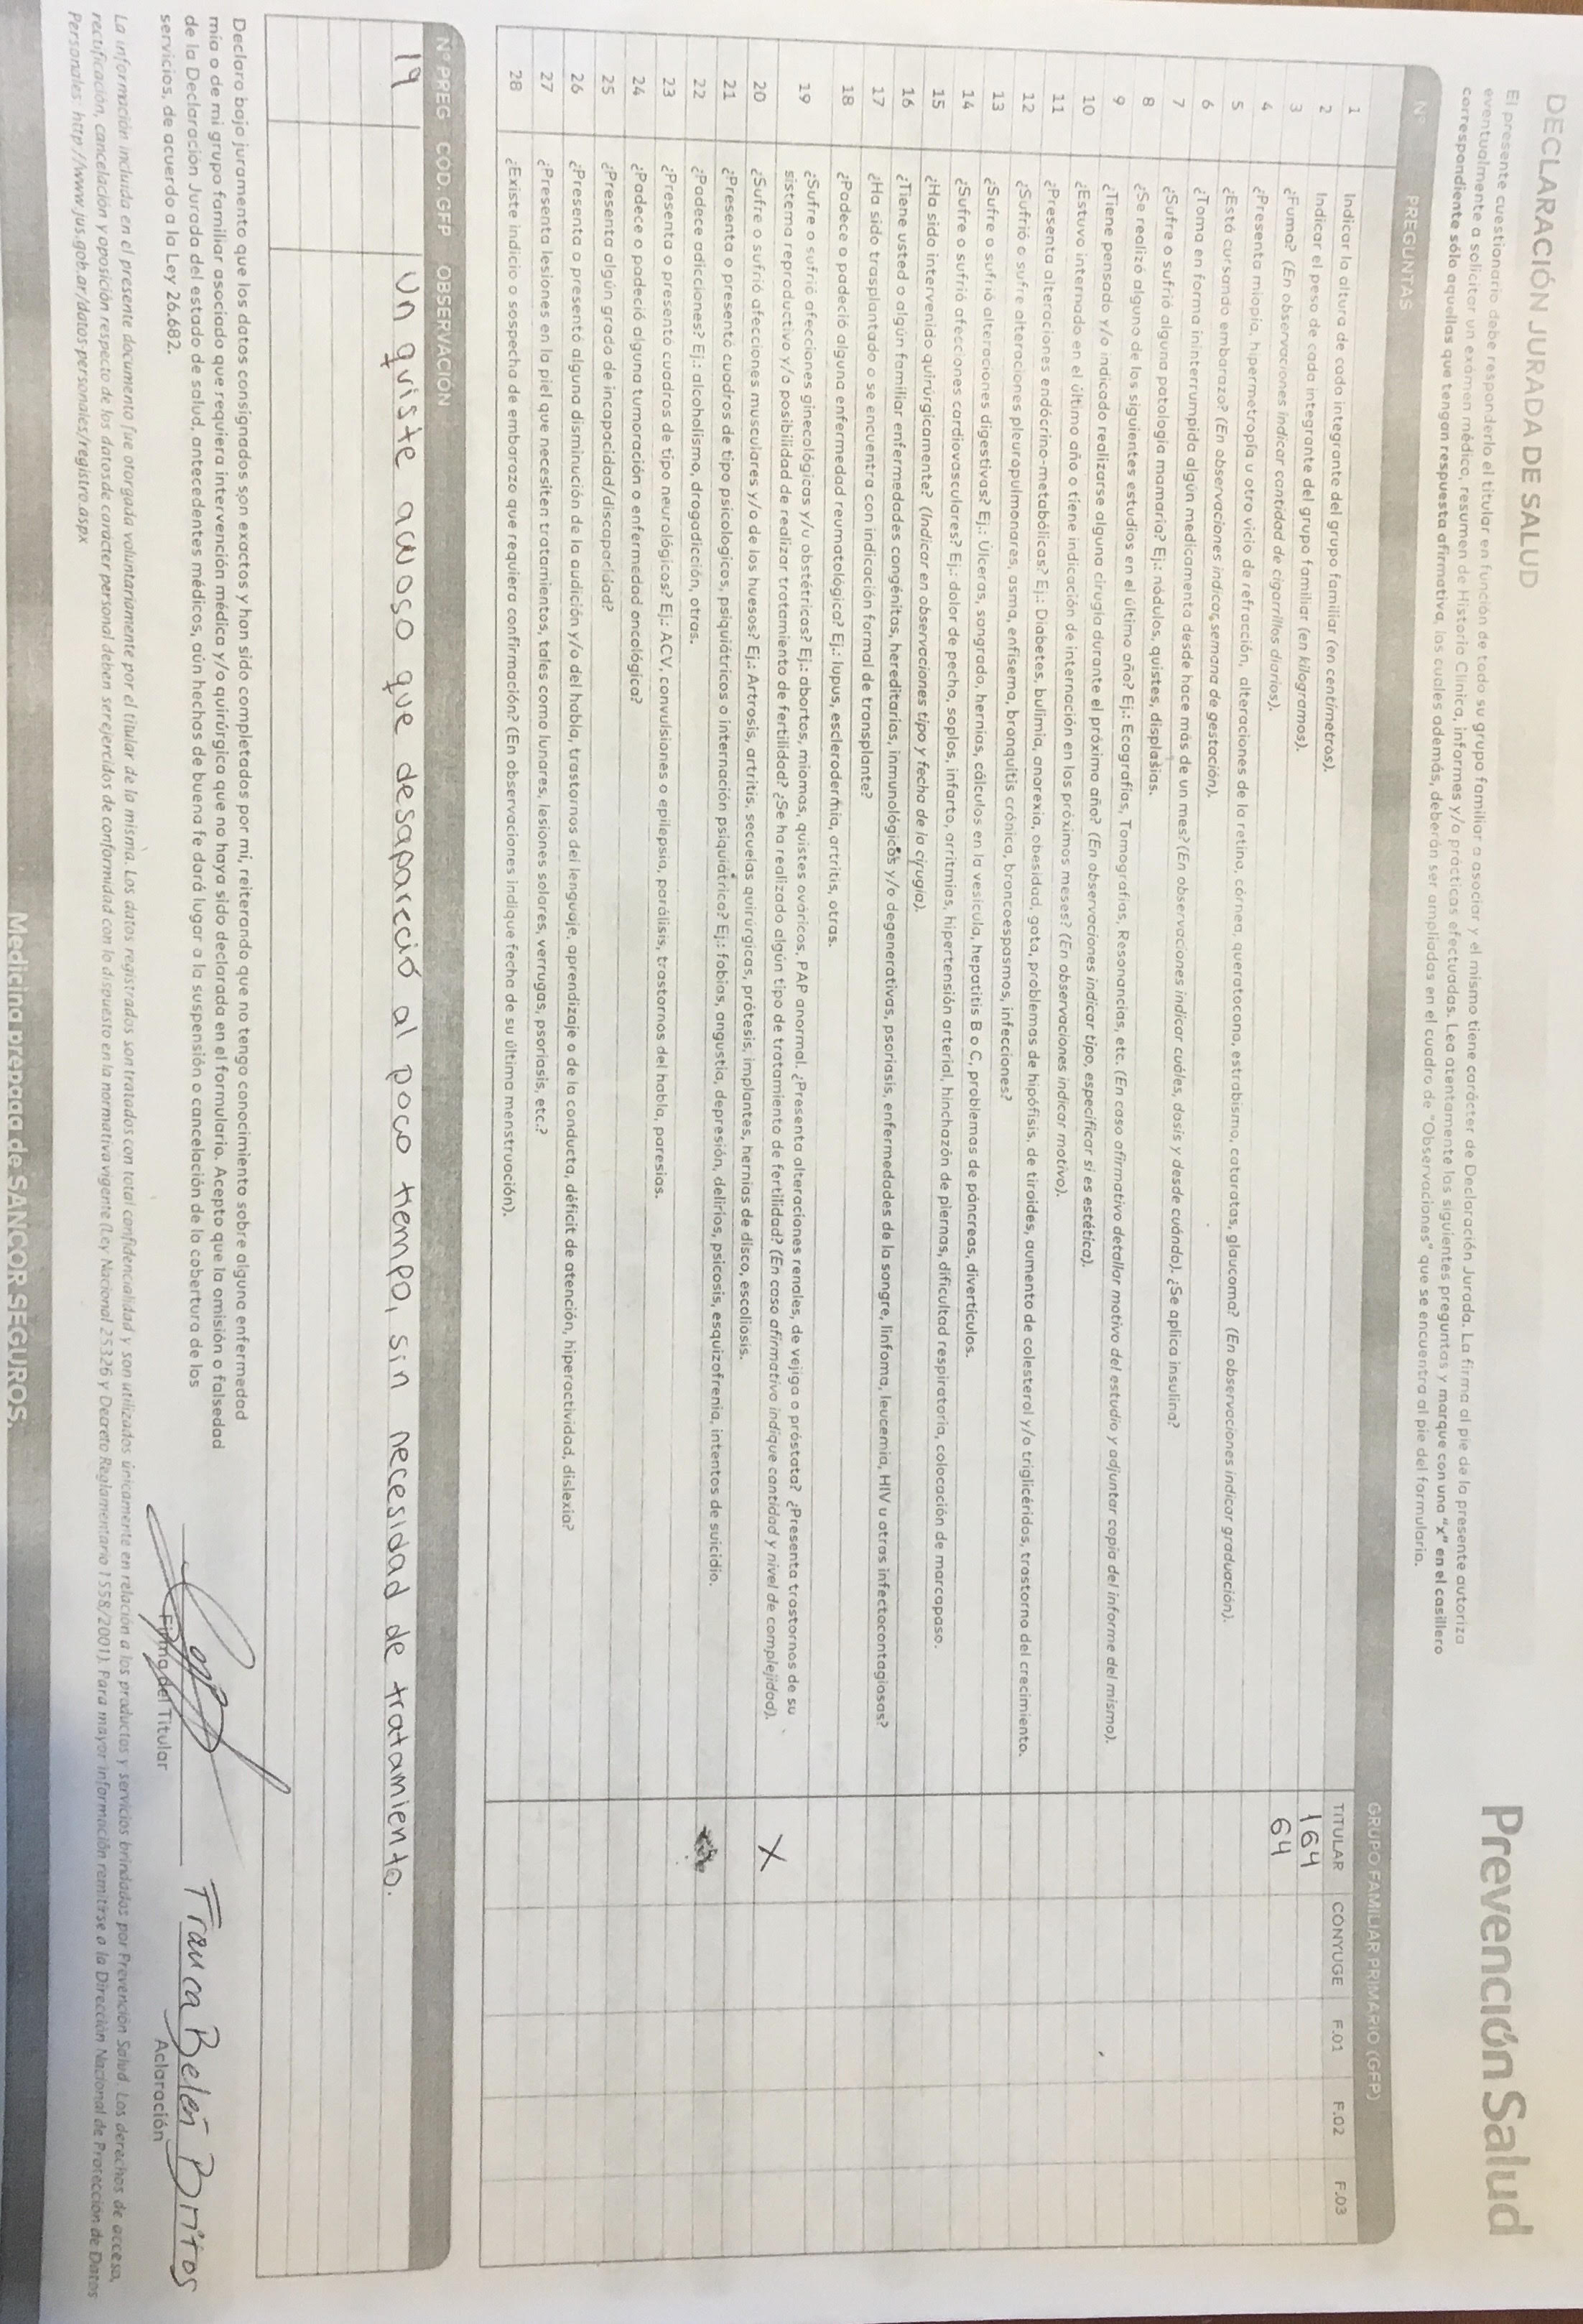 DECLARACIÓN JURADA DE SALUD
Prevención Salud
El presente cuestionario debe responderlo el titular en función de todo su grupo familiar a asociar y el mismo tiene carácter de Declaración Jurada. La firma al pie de la presente autoriza
eventualmente a solicitar un exámen médico, resumen de Historia Clínica, informes y/o prácticas efectuadas. Lea atentamente las siguientes preguntas y marque con una "x" en el casillero
correspondiente sólo aquellas que tengan respuesta afirmativa, las cuales además, deberán ser ampliadas en el cuadro de "Observaciones" que se encuentra al pie del formulario.
GRUPO FAMILIAR PRIMARIO (GFP)
Nº PREGUNTAS TITULAR CÓNYUGE F.01 F.02 F.03
1 Indicar la altura de cada integrante del grupo familiar (en centímetros). 164
2 Indicar el peso de cada integrante del grupo familiar (en kilogramos). 64
3 ¿Fuma? (En observaciones indicar cantidad de cigarrillos diarios).
4 ¿Presenta miopía, hipermetropía u otro vicio de refracción, alteraciones de la retina, córnea, queratocono, estrabismo, cataratas, glaucoma? (En observaciones indicar graduación).
5 ¿Está cursando embarazo? (En observaciones indicar semana de gestación).
6 ¿Toma en forma ininterrumpida algún medicamento desde hace más de un mes? (En observaciones indicar cuáles, dosis y desde cuándo). ¿Se aplica insulina?
7 ¿Sufre o sufrió alguna patología mamaria? Ej.: nódulos, quistes, displasias.
8 ¿Se realizó alguno de los siguientes estudios en el último año? Ej.: Ecografías, Tomografías, Resonancias, etc. (En caso afirmativo detallar motivo del estudio y adjuntar copia del informe del mismo).
9 ¿Tiene pensado y/o indicado realizarse alguna cirugía durante el próximo año? (En observaciones indicar tipo, especificar si es estética).
10 ¿Estuvo internado en el último año o tiene indicación de internación en los próximos meses? (En observaciones indicar motivo).
11 ¿Presenta alteraciones endócrino-metabólicas? Ej.: Diabetes, bulimia, anorexia, obesidad, gota, problemas de hipófisis, de tiroides, aumento de colesterol y/o triglicéridos, trastorno del crecimiento.
12 ¿Sufrió o sufre alteraciones pleuropulmonares, asma, enfisema, bronquitis crónica, broncoespasmos, infecciones?
13 ¿Sufre o sufrió alteraciones digestivas? Ej.: Úlceras, sangrado, hernias, cálculos en la vesícula, hepatitis B o C, problemas de páncreas, divertículos.
14 ¿Sufre o sufrió afecciones cardiovasculares? Ej.: dolor de pecho, soplos, infarto, arritmias, hipertensión arterial, hinchazón de piernas, dificultad respiratoria, colocación de marcapaso.
15 ¿Ha sido intervenido quirúrgicamente? (Indicar en observaciones tipo y fecha de la cirugía).
16 ¿Tiene usted o algún familiar enfermedades congénitas, hereditarias, inmunológicas y/o degenerativas, psoriasis, enfermedades de la sangre, linfoma, leucemia, HIV u otras infectocontagiosas?
17 ¿Ha sido trasplantado o se encuentra con indicación formal de transplante?
18 ¿Padece o padeció alguna enfermedad reumatológica? Ej.: lupus, esclerodermia, artritis, otras.
19 ¿Sufre o sufrió afecciones ginecológicas y/u obstétricas? Ej.: abortos, miomas, quistes ováricos, PAP anormal. ¿Presenta alteraciones renales, de vejiga o próstata? ¿Presenta trastornos de su
sistema reproductivo y/o posibilidad de realizar tratamiento de fertilidad? ¿Se ha realizado algún tipo de tratamiento de fertilidad? (En caso afirmativo indique cantidad y nivel de complejidad). X
20 ¿Sufre o sufrió afecciones musculares y/o de los huesos? Ej.: Artrosis, artritis, secuelas quirúrgicas, prótesis, implantes, hernias de disco, escoliosis.
21 ¿Presenta o presentó cuadros de tipo psicologicos, psiquiátricos o internación psiquiátrica? Ej.: fobias, angustia, depresión, delirios, psicosis, esquizofrenia, intentos de suicidio.
22 ¿Padece adicciones? Ej.: alcoholismo, drogadicción, otras.
23 ¿Presenta o presentó cuadros de tipo neurológicos? Ej.: ACV, convulsiones o epilepsia, parálisis, trastornos del habla, paresias.
24 ¿Padece o padeció alguna tumoración o enfermedad oncológica?
25 ¿Presenta algún grado de incapacidad/discapacidad?
26 ¿Presenta o presentó alguna disminución de la audición y/o del habla, trastornos del lenguaje, aprendizaje o de la conducta, déficit de atención, hiperactividad, dislexia?
27 ¿Presenta lesiones en la piel que necesiten tratamientos, tales como lunares, lesiones solares, verrugas, psoriasis, etc.?
28 ¿Existe indicio o sospecha de embarazo que requiera confirmación? (En observaciones indique fecha de su última menstruación).
Nº PREG CÓD. GFP OBSERVACIÓN
19 Un quiste acuoso que desapareció al poco tiempo, sin necesidad de tratamiento.
Declaro bajo juramento que los datos consignados son exactos y han sido completados por mi, reiterando que no tengo conocimiento sobre alguna enfermedad
mía o de mi grupo familiar asociado que requiera intervención médica y/o quirúrgica que no haya sido declarada en el formulario. Acepto que la omisión o falsedad
de la Declaración Jurada del estado de salud, antecedentes médicos, aún hechos de buena fe dará lugar a la suspensión o cancelación de la cobertura de los
servicios, de acuerdo a la Ley 26.682.
Franca Belén Britos
Firma del Titular Aclaración
La información incluida en el presente documento fue otorgada voluntariamente por el titular de la misma. Los datos registrados son tratados con total confidencialidad y son utilizados únicamente en relación a los productos y servicios brindados por Prevención Salud. Los derechos de acceso,
rectificación, cancelación y oposición respecto de los datos de carácter personal deben ser ejercidos de conformidad con lo dispuesto en la normativa vigente (Ley Nacional 25326 y Decreto Reglamentario 1558/2001). Para mayor información remitirse a la Dirección Nacional de Protección de Datos
Personales: http://www.jus.gob.ar/datos-personales/registro.aspx
Medicina prepaga de SANCOR SEGUROS.